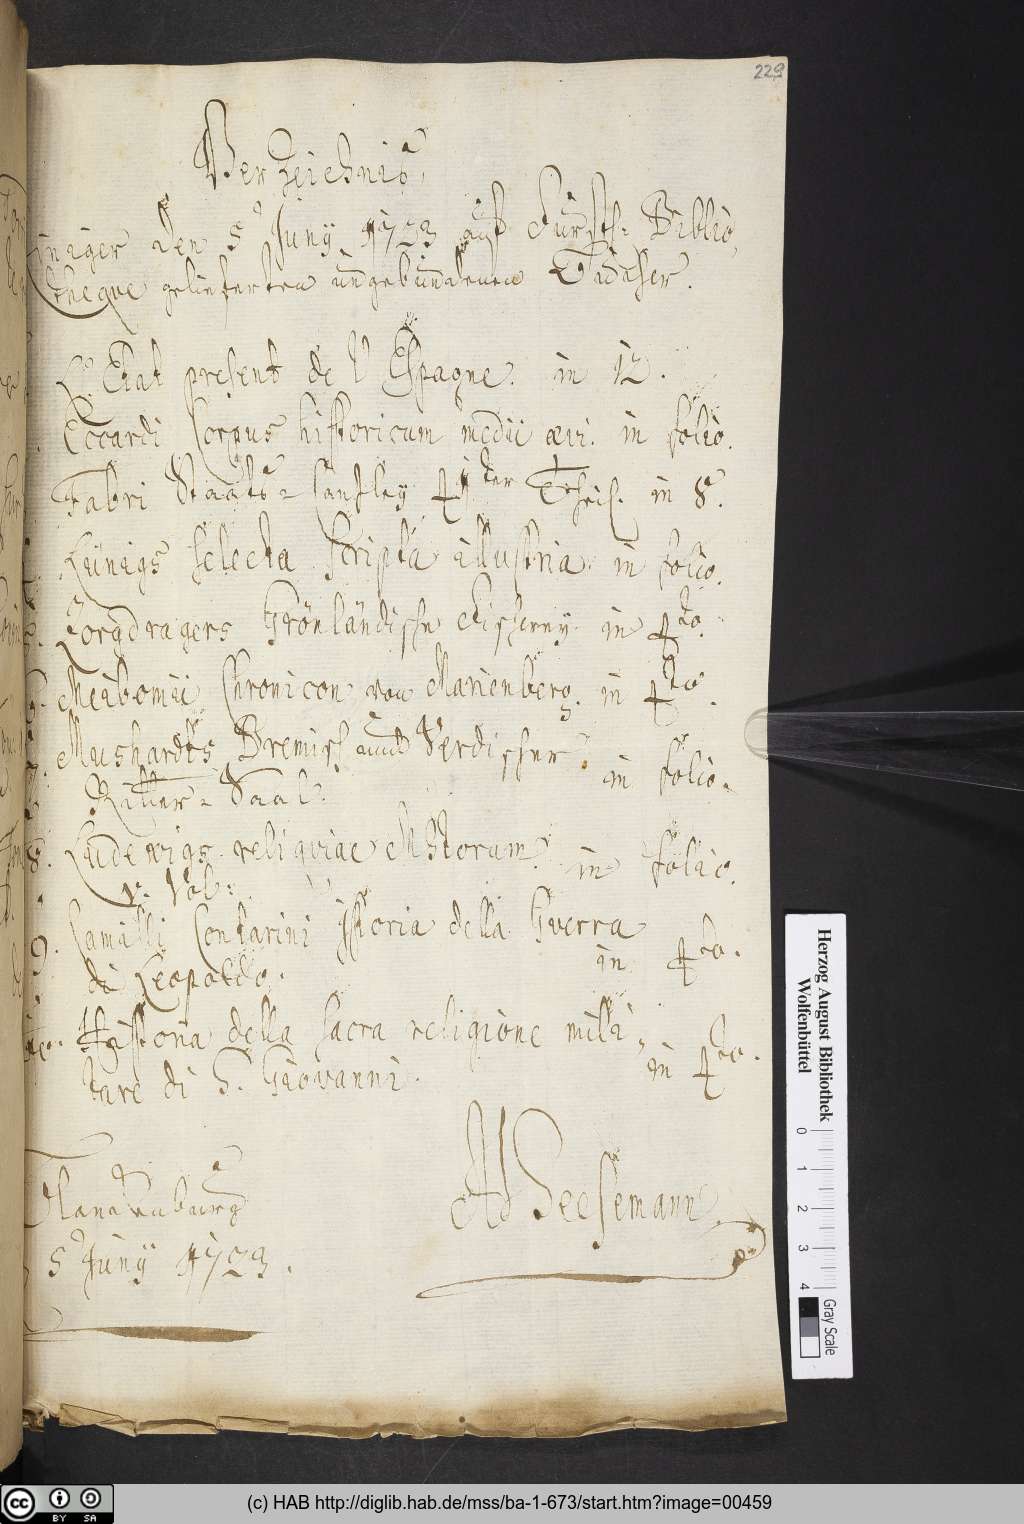 229
Verzeichnis
einiger den 5 Juny 1723 auf Fürstl: Biblio,
theque gelieferten ungebundenen Bücher.
L'Etat present de l'Espagne. in 12.
Eccardi Corpus historicum medii ævi. in folio.
Fabri Staats-Cantzley 41ster Theil. in 8.
Lünigs selecta scripta illustria in folio.
5. Zorgdragers Grönländische Fischerey. in 4to.
6. Meibomii Chronicon von Marienberg. in 4to.
7. Mushardts Bremisch und Verdischer
Ritter-Saal. in folio.
8. Ludewigs reliqviae MStorum. in folio.
V. Vol:
9. Camilli Contarini Istoria della Gverra
di Leopoldo. in 4to.
10. Historia della sacra religione mili,
tare di S. Giovanni. in 4to.
Blanckenburg
5 Juny 1723.
AD Seesemann
Herzog August Bibliothek
Wolfenbüttel
0 1 2 3 4
Gray Scale
cc BY SA
(c) HAB http://diglib.hab.de/mss/ba-1-673/start.htm?image=00459